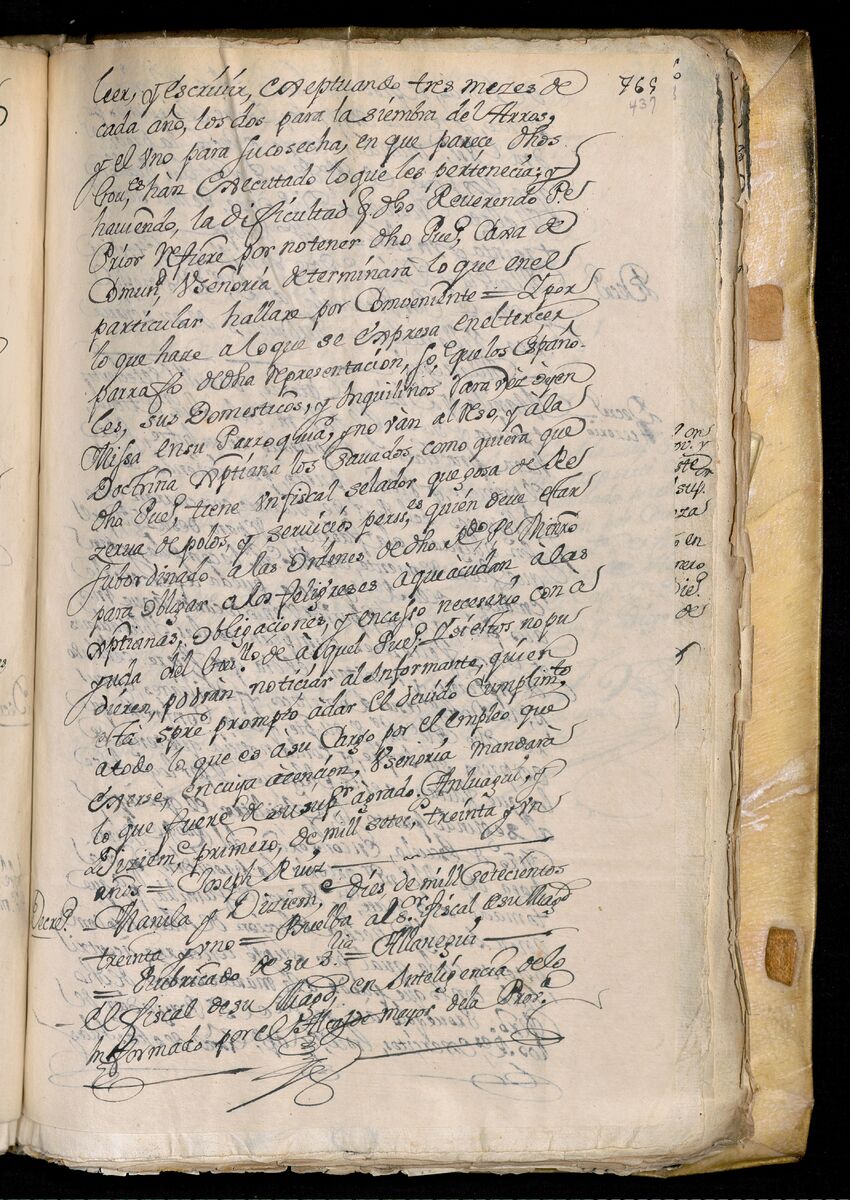 765
437
leer, y escrivir, exceptuando tres mezes de
cada año, los dos para la siembra del Arros,
y el vno para su cosecha, en que parece dhos
Gou.es han executado lo que les pertenecia; y
haviendo, la dificultad q dho Reverendo Pe
Prior refiere por no tener dho Pue.o Caxa de
Comun.d, Vseñoria determinarà lo que en el
particular hallare por Conveniente = Y por
lo que haze a lo que se expresa en el tercer
parrafo de dha representacion, sò, que los Españo-
les, sus Domesticos, y Inquilinos rara vèz oyen
Missa en su Parroquia, y no vàn al reso, y à la
Doctrina xptiana los Criados, como quiera que
dho Pue.o, tiene vn fiscal selador que gosa de Re
zerva de polos, y servicios pers.es quien deve estar
subordinado à las ordenes de dho R.do Pe Mrño
para obligar a los feligreses à que acudan a las
xptianas, obligaciones, y en casso necesario con a
yuda del Gov.llo de aquel Pue.o Y si estos no pu
dieren, podràn noticiar al Informante, quien
està spre prompto à dar el devido Cumplim.to
à todo lo que es à su Cargo por el empleo que
exerse, en cuya atencion, Vseñoria mandarà
lo que fuere de su sup.r agrado. Anluagui, y
Diziem.e primero, de mill setec.s treinta y vn
años = Joseph Ruiz
Decre.o
Manila y Diziem.e dies de mill setecientos
treinta y vno = Buelba al S.or fiscal de su Mag.d
= Rubricado de su S.ria = Allanegui
El fiscal de su Mag.d en Inteligencia de lo
Informado por el Alcalde mayor de la Prov.a